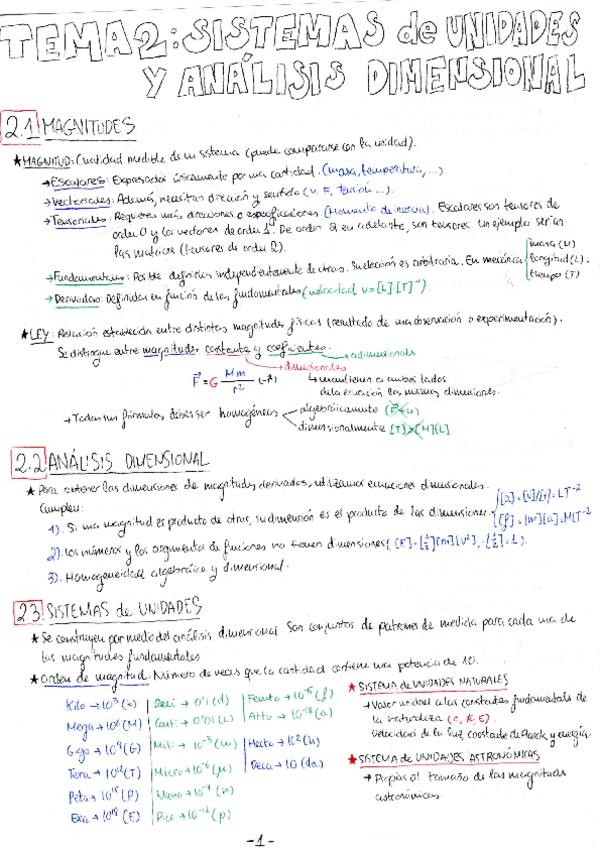 TEMA 2: SISTEMAS de UNIDADES
Y ANÁLISIS DIMENSIONAL
2.1 MAGNITUDES
★ MAGNITUD: Cualidad medible de un sistema (puede compararse con la unidad).
→ Escalares: Expresados únicamente por una cantidad. (masa, temperatura, ...)
→ Vectoriales: Además, necesitan dirección y sentido (v, F, tensión ...).
→ Tensoriales: Requieren más direcciones o especificaciones (Momento de inercia). Escalares son tensores de
orden 0 y los vectores de orden 1. De orden 2 en adelante, son tensores. Un ejemplo serían
las matrices (tensores de orden 2).
→ Fundamentales: Posible definirlas independientemente de otras. Su elección es arbitraria. En mecánica
masa (M)
longitud (L)
tiempo (T)
→ Derivadas: Definidas en función de las fundamentales (velocidad v = [L]·[T]⁻¹
★ LEY: Relación establecida entre distintas magnitudes físicas (resultado de una observación o experimentación).
Se distingue entre magnitudes constante y coeficientes.
→ adimensionales
→ dimensionales
F = G Mm/r² (-r)
↳ mantienen a ambos lados
de la ecuación las mismas dimensiones.
→ Todas sus fórmulas deben ser homogéneas
algebraicamente
dimensionalmente [T] [M][L]
2.2 ANÁLISIS DIMENSIONAL
★ Para obtener las dimensiones de magnitudes derivadas, utilizamos ecuaciones dimensionales.
Cumplen:
1). Si una magnitud es producto de otras, su dimensión es el producto de las dimensiones
[a] = [v]/[t] = LT⁻²
[f] = [m][a] = MLT⁻²
2). Los números y los argumentos de funciones no tienen dimensiones ( [E] = [½][m][v²], [½] = 1 ).
3). Homogeneidad algebraica y dimensional.
2.3 SISTEMAS de UNIDADES
★ Se construyen por medio del análisis dimensional. Son conjuntos de patrones de medida para cada una de
las magnitudes fundamentales.
★ Orden de magnitud: Número de veces que la cantidad contiene una potencia de 10.
Kilo → 10³ (k)
Mega → 10⁶ (M)
Giga → 10⁹ (G)
Tera → 10¹² (T)
Peta → 10¹⁵ (P)
Exa → 10¹⁸ (E)
Deci → 0'1 (d)
Centi → 0'01 (c)
Mili → 10⁻³ (m)
Micro → 10⁻⁶ (μ)
Nano → 10⁻⁹ (n)
Pico → 10⁻¹² (p)
Femto → 10⁻¹⁵ (f)
Atto → 10⁻¹⁸ (a)
Hecto → 10² (h)
Deca → 10 (da)
★ SISTEMA de UNIDADES NATURALES
→ Valor unidad a las constantes fundamentales de
la naturaleza
velocidad de la luz, constante de Planck y energía.
★ SISTEMA de UNIDADES ASTRONÓMICAS
→ Propias al tamaño de las magnitudes
astronómicas.
-1-